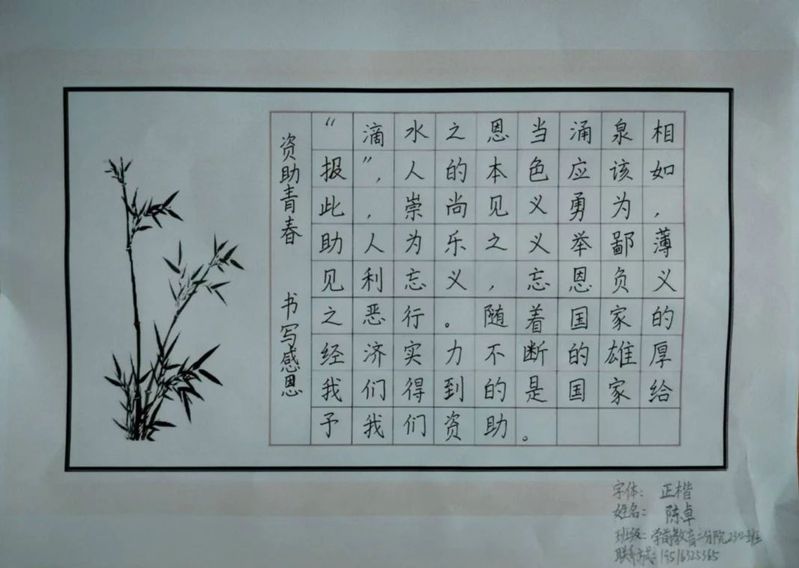 资助青春 书写感恩
“滴水之恩当涌泉相
报”，人的本色应该如
此，崇尚见义勇为，
助人为乐之义举鄙薄
见利忘义，忘恩负义
之恶行。随着国家的
经济实力不断的雄厚
我们得到的是国家给
予我们资助。
字体：正楷
姓名：陈卓
班级：学前教育
联系方式：